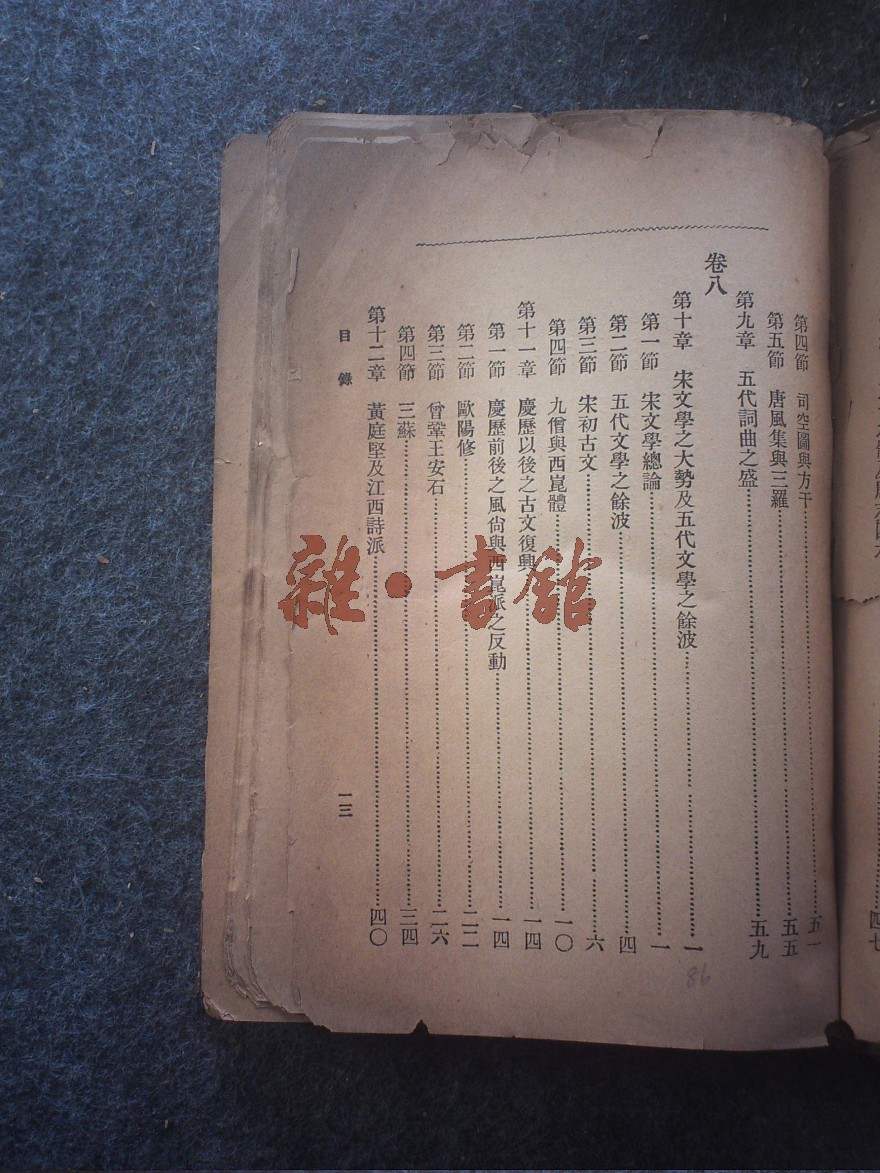 第四節 司空圖與方干……五一
第五節 唐風集與三羅……五五
第九章 五代詞曲之盛……五九
卷八
第十章 宋文學之大勢及五代文學之餘波……一
第一節 宋文學總論……一
第二節 五代文學之餘波……四
第三節 宋初古文……六
第四節 九僧與西崑體……一〇
第十一章 慶歷以後之古文復興……一四
第一節 慶歷前後之風尙與西崑派之反動……一四
第二節 歐陽修……二二
第三節 曾鞏王安石……二六
第四節 三蘇……三四
第十二章 黃庭堅及江西詩派……四〇
目錄 一三
86
雜·書館
四七